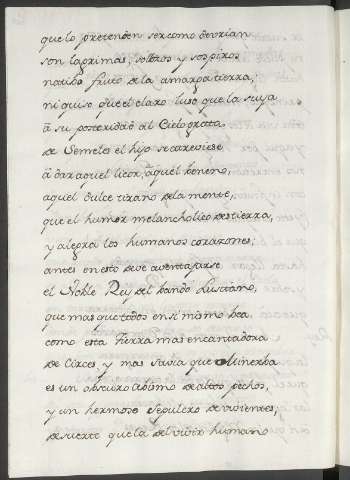 que lo pretenden ser como devrian
son lagrimas, sollozos y sospiros
natibo fruto de la amarga tierra,
ni quiso que el claro luso que la suya
a su posteridad al Cielo grata
de Semeles el hijo se atreviese
a dar aquel licor, aquel beneno,
aquel dulce tirano de la mente,
que el humor melancholico destierra,
y alegra los humanos corazones,
antes en esto deve aventajarse
el Noble Rey del bando Lusitano,
que mas que todos en si mismo bea
como esta tierra mas encantadora
de Circes, y mas savia que Minerba
es un obscuro abismo de altos pechos,
y un hermoso sepulcro de vivientes,
de suerte que la del vivir humano